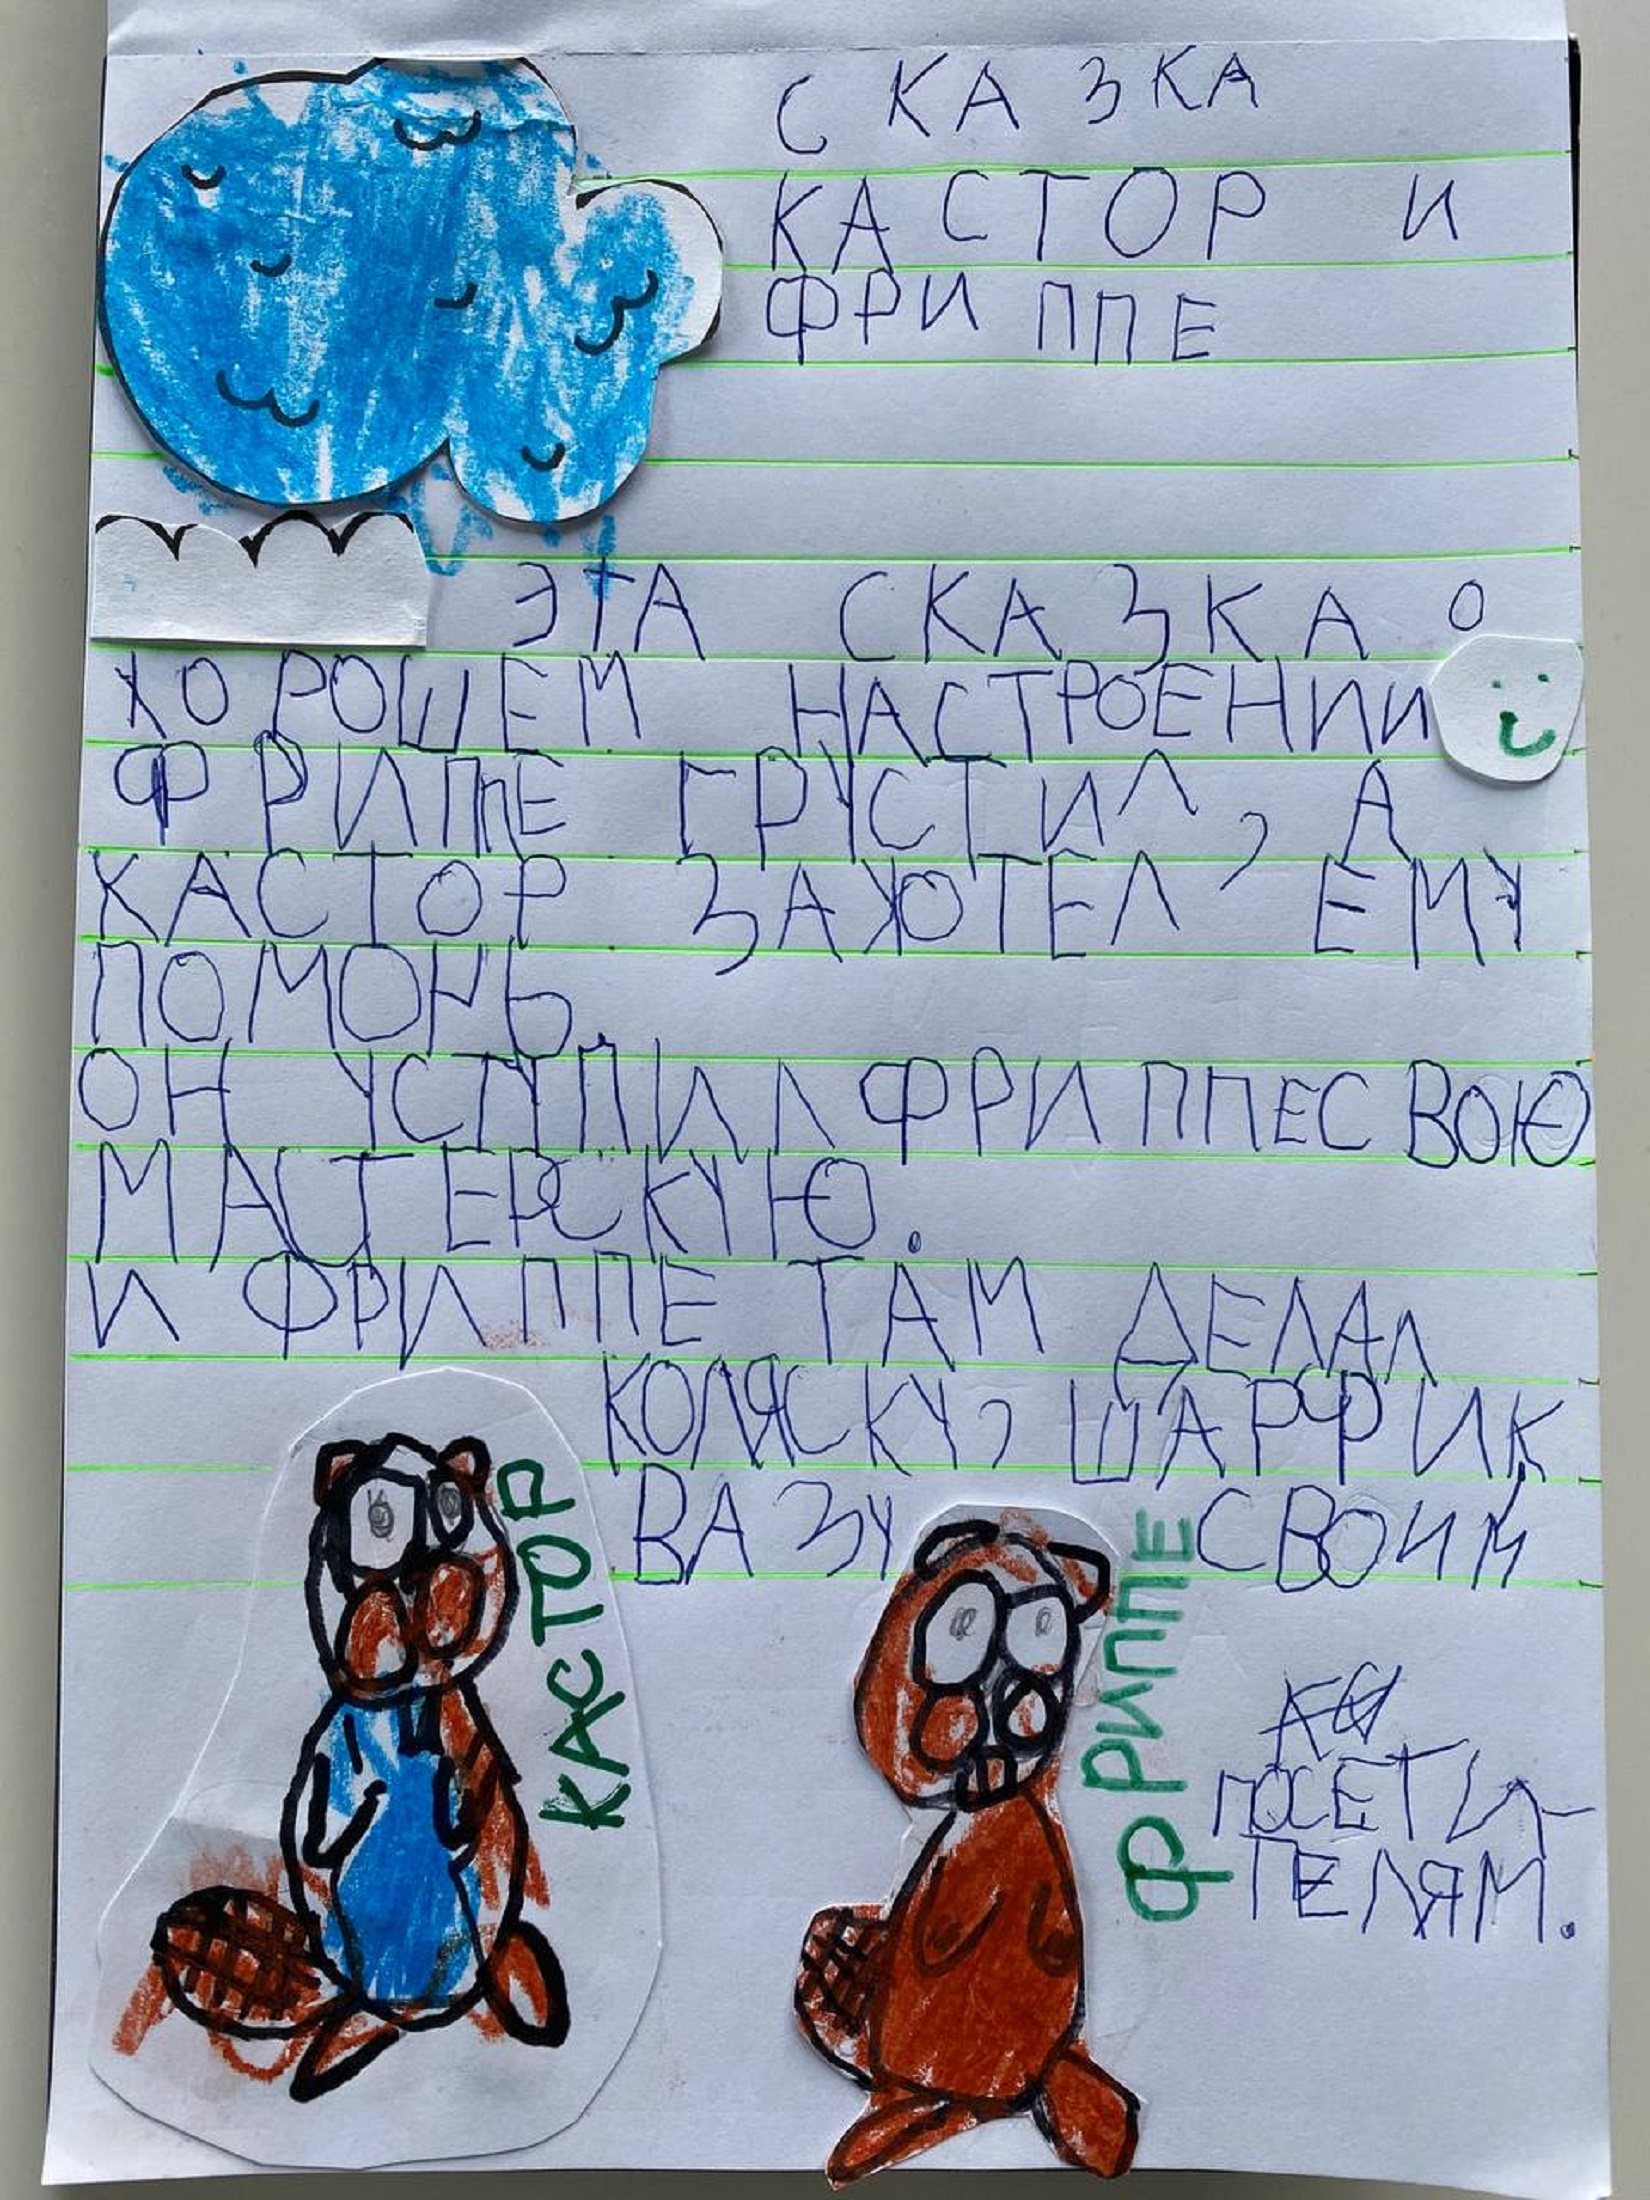 СКАЗКА
КАСТОР И
ФРИППЕ
ЭТА СКАЗКА О
ХОРОШЕМ НАСТРОЕНИИ
ФРИППЕ ГРУСТИЛ, А
КАСТОР ЗАХОТЕЛ ЕМУ
ПОМОЧЬ.
ОН УСТУПИЛ ФРИППЕ СВОЮ
МАСТЕРСКУЮ.
И ФРИППЕ ТАМ ДЕЛАЛ
КОЛЯСКУ, ШАРФИК
ВАЗУ СВОИМ
ПОСЕТИ-
ТЕЛЯМ.
КАСТОР
ФРИППЕ